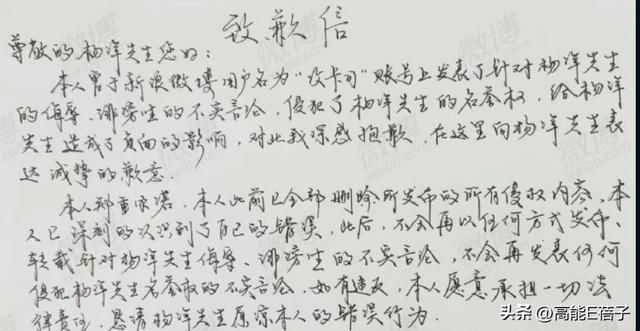 致歉信
尊敬的杨洋先生您好：
本人曾于新浪微博用户名为“坟卡司”账号上发表了针对杨洋先生
的侮辱、诽谤性的不实言论，侵犯了杨洋先生的名誉权，给杨洋
先生造成了负面的影响，对此我深感抱歉，在这里向杨洋先生表
达诚挚的歉意.
本人郑重承诺，本人此前已全部删除所发布的所有侵权内容，本
人已深刻的认识到了自己的错误，此后，不会再以任何方式发布、
转载针对杨洋先生侮辱、诽谤性的不实言论，不会再发表任何
侵犯杨洋先生名誉权的不实言论.如有违反，本人愿意承担一切法
律责任，恳请杨洋先生原谅本人的错误行为.
头条@高能E蓓子